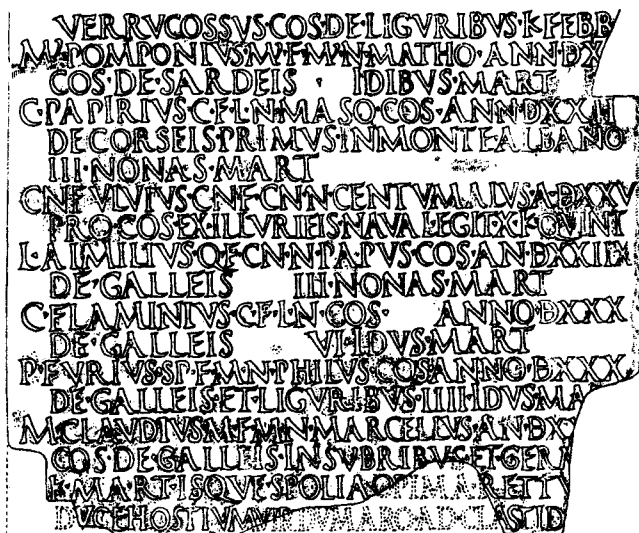 VERRVCOSSVS·COS·DE·LIGVRIBVS·K·FEBR
M'·POMPONIVS·M'·F·M'·N·MATHO·ANN·DX
COS·DE·SARDEIS · IDIBVS·MART
C·PAPIRIVS·C·F·L·N·MASO·COS·ANN·DXXII
DE·CORSEIS·PRIMVS·IN·MONTE·ALBANO
III·NONAS·MART
CN·FVLVIVS·CN·F·CN·N·CENTVMALVS·A·DXXV
PRO·COS·EX·ILLVRIEIS·NAVAL·EGIT·X·K·QVINT
L·AIMILIVS·Q·F·CN·N·PAPVS·COS·AN·DXXIIX
DE·GALLEIS III·NONAS·MART
C·FLAMINIVS·C·F·L·N·COS· ANNO·DXXX
DE·GALLEIS VI·IDVS·MART
P·FVRIVS·SP·F·M·N·PHILVS·COS·ANNO·DXXX
DE·GALLEIS·ET·LIGVRIBVS·IIII·IDVS·MA
M·CLAVDIVS·M·F·M·N·MARCELLVS·AN·DXX
COS·DE·GALLEIS·INSVBRIBVS·ET·GERM
K·MART·ISQVE·SPOLIA·OPIMA·RETT
DVCE·HOSTIVM·VIRDVMARO·AD·CLASTID